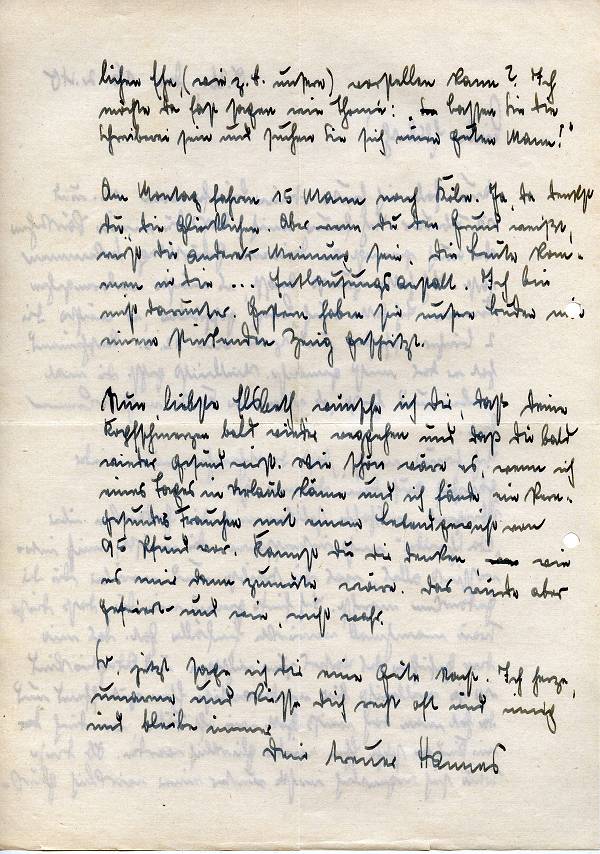 lichen Ehe (wie z. B. unsere) vorstellen kann? Ich
möchte da fast sagen wie Thoma: „ lassen Sie die
Schreiberei sein und suchen Sie sich einen guten Mann!“
Am Montag fahren 15 Mann nach Köln. Ja, da denkst
du, die Glücklichen. Aber wenn du den Grund weißt,
wirst du anderer Meinung sein. Die Leute kom-
men in die ... Entlausungsanstalt. Ich bin
nicht darunter. Gestern haben sie unsere Buden mit
einem stinkenden Zeug gespritzt.
Nun, liebste Elsbeth, wünsche ich dir, daß deine
Kopfschmerzen bald wieder vergehen und daß du bald
wieder gesund wirst. Wie schön wäre es, wenn ich
eines Tages in Urlaub käme und ich fände ein kern-
gesundes Frauchen mit einem Lebendgewicht von
95 Pfund vor. Kannst du dir denken wie
es mir dann zumute wäre. Das würde aber
gefeiert und wie, nicht wahr.
So, jetzt sage ich dir eine Gute Nacht. Ich herze,
umarme und küsse dich recht oft und innig
und bleibe immer
Dein treuer Hannes